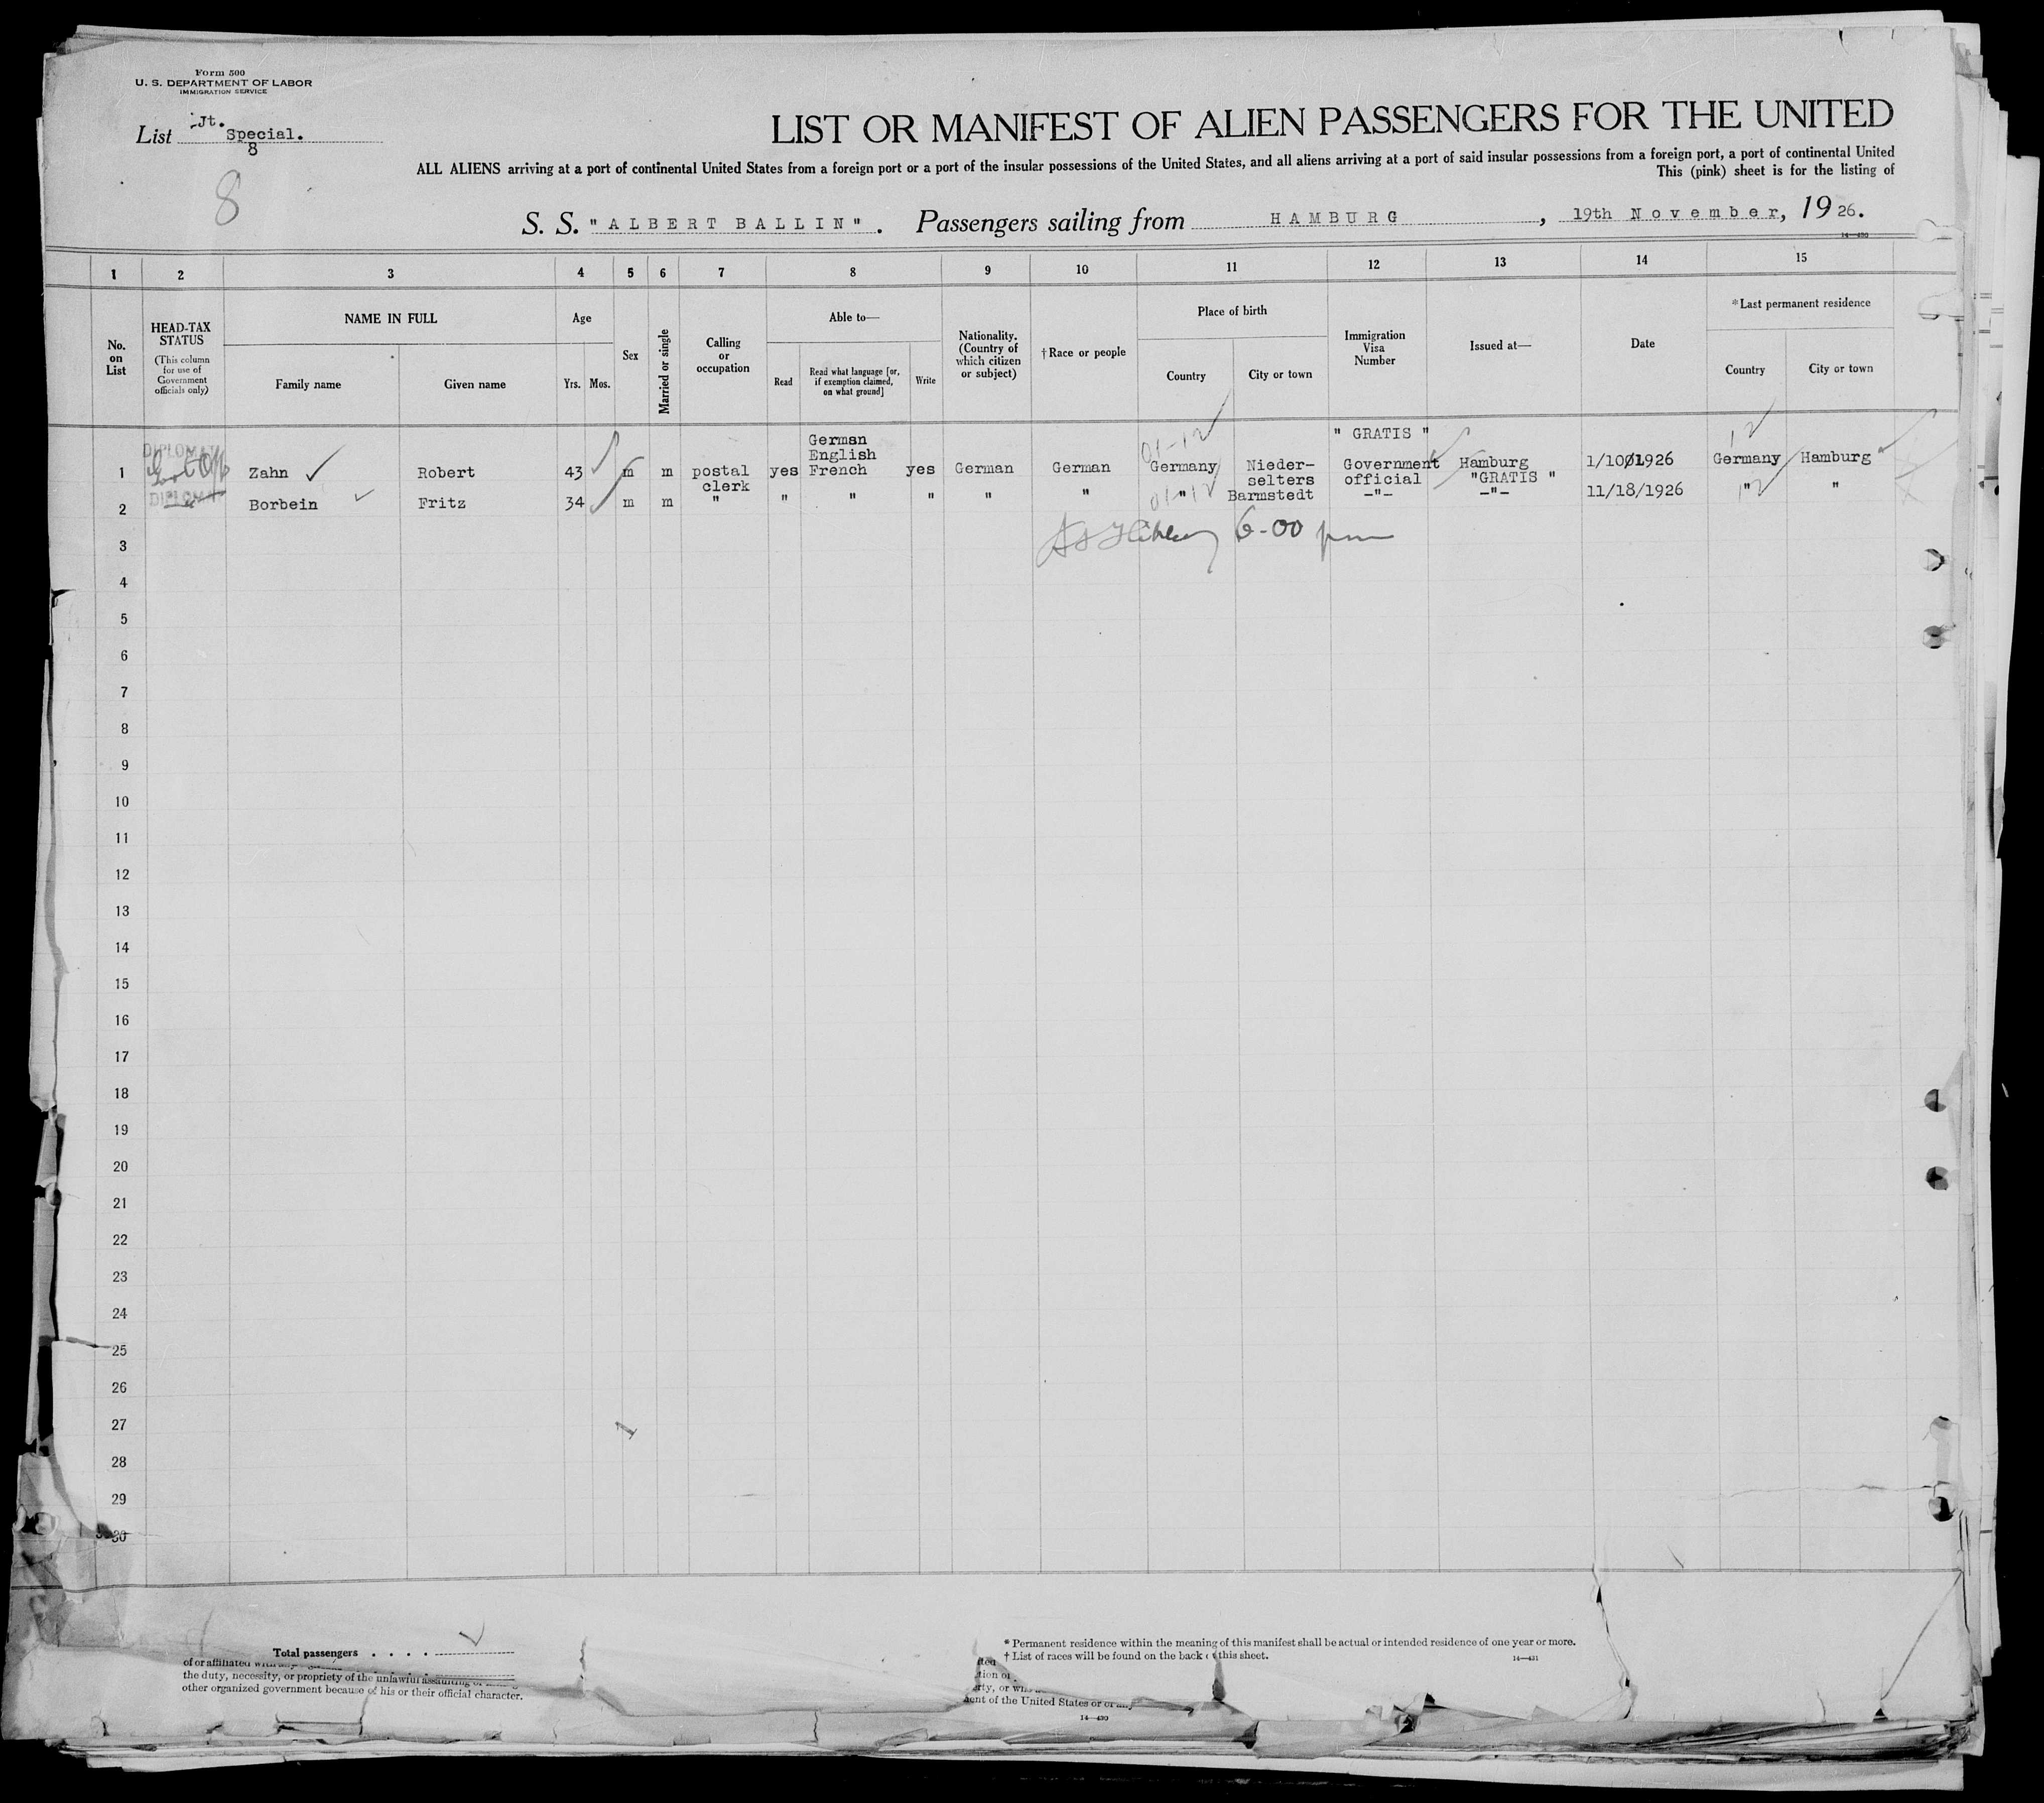 Form 500
U. S. DEPARTMENT OF LABOR
IMMIGRATION SERVICE
List Jt. Special.
8
8
LIST OR MANIFEST OF ALIEN PASSENGERS FOR THE UNITED
ALL ALIENS arriving at a port of continental United States from a foreign port or a port of the insular possessions of the United States, and all aliens arriving at a port of said insular possessions from a foreign port, a port of continental United
This (pink) sheet is for the listing of
S. S. "ALBERT BALLIN". Passengers sailing from HAMBURG, 19th November, 1926.
14—430
1 2 3 4 5 6 7 8 9 10 11 12 13 14 15
No. on List
HEAD-TAX STATUS
(This column for use of Government officials only)
NAME IN FULL
Family name Given name
Age
Yrs. Mos.
Sex
Married or single
Calling or occupation
Able to—
Read
Read what language [or, if exemption claimed, on what ground]
Write
Nationality. (Country of which citizen or subject)
†Race or people
Place of birth
Country City or town
Immigration Visa Number
Issued at—
Date
*Last permanent residence
Country City or town
DIPLOMAT
1 Zahn Robert 43 m m postal clerk yes German English French yes German German 01-12 Germany Nieder-selters "GRATIS" Government official Hamburg 1/10/1926 12 Germany Hamburg
DIPLOMAT
2 Borbein Fritz 34 m m " " " " " " 01-12 " Barmstedt -"- "GRATIS" -"- 11/18/1926 12 " "
6-00 pm
3
4
5
6
7
8
9
10
11
12
13
14
15
16
17
18
19
20
21
22
23
24
25
26
27
28
29
30
Total passengers . . . .
of or affiliated with any
the duty, necessity, or propriety of the unlawful assaulting or
other organized government because of his or their official character.
* Permanent residence within the meaning of this manifest shall be actual or intended residence of one year or more.
† List of races will be found on the back of this sheet.
14—431
tion of
erty, or
ment of the United States or of any
14—430